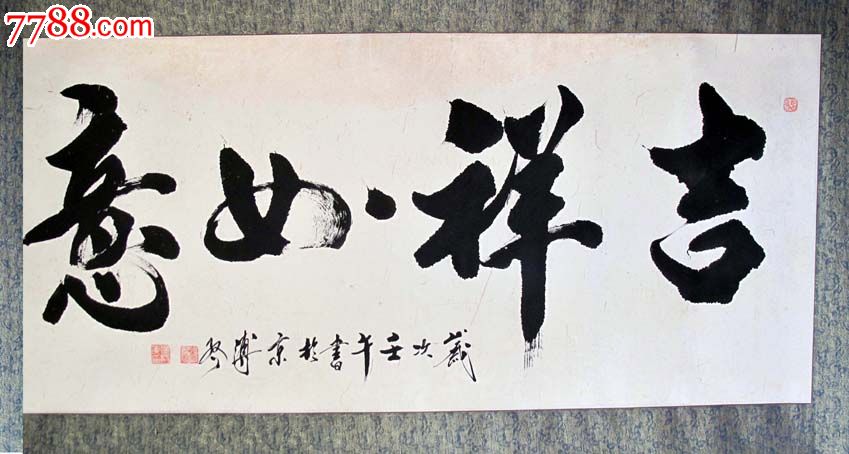 7788.com
吉祥如意
歲次壬午書於京